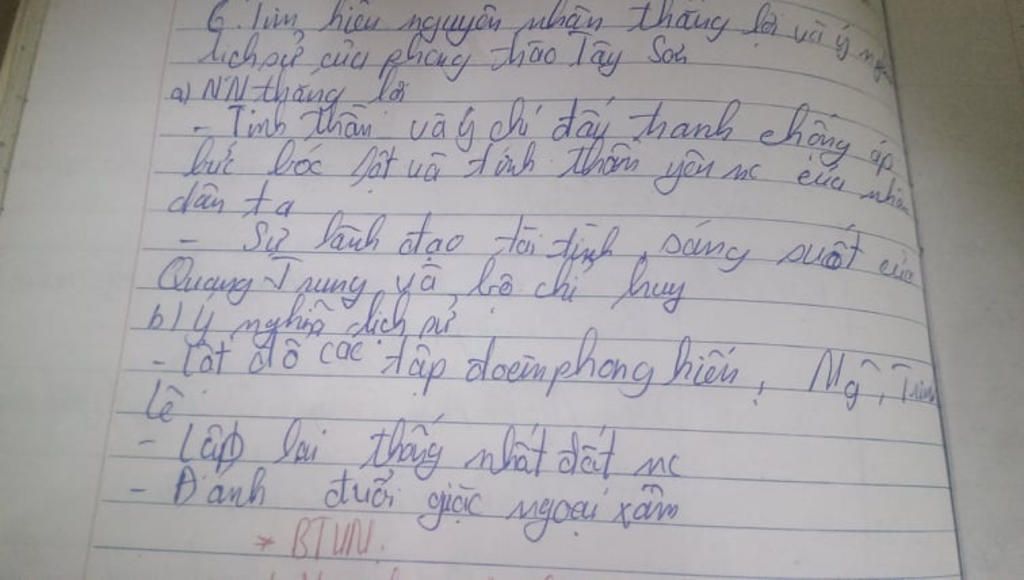 6. Tìm hiểu nguyên nhân thắng lợi và ý
lịch sử của phong trào Tây Sơn
a) NN thắng lợi
- Tinh thần và ý chí đấu tranh chống áp
bức bóc lột và tinh thần yêu nc của nhân
dân ta
- Sự lãnh đạo tài tình, sáng suốt của
Quang Trung và bộ chỉ huy
b) Ý nghĩa lịch sử
- Lật đổ các tập đoàn phong kiến, Ng~, Trịnh
Lê
- Lập lại thống nhất đất nc
- Đánh đuổi giặc ngoại xâm
* BTVN.